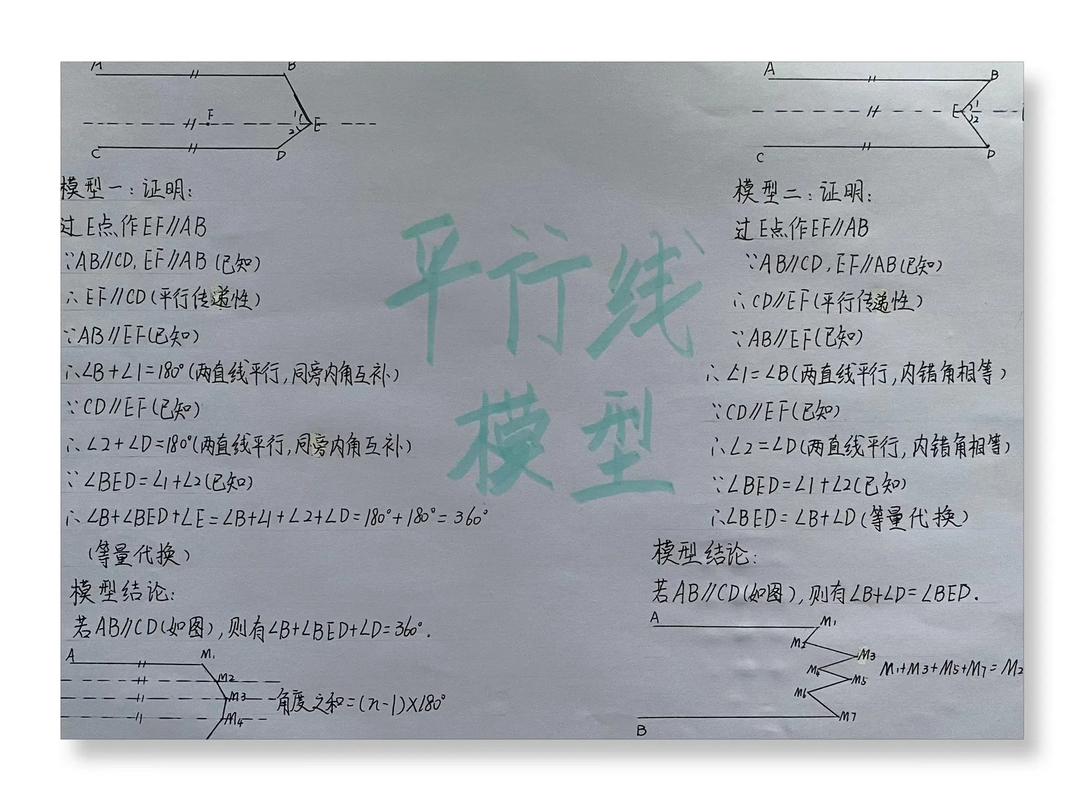 A B
F
1
2 E
C D
模型一:证明:
过E点作EF∥AB
∵AB∥CD,EF∥AB(已知)
∴EF∥CD(平行传递性)
∵AB∥EF(已知)
∴∠B+∠1=180°(两直线平行,同旁内角互补)
∵CD∥EF(已知)
∴∠2+∠D=180°(两直线平行,同旁内角互补)
∵∠BED=∠1+∠2(已知)
∴∠B+∠BED+∠E=∠B+∠1+∠2+∠D=180°+180°=360°
(等量代换)
模型结论:
若AB∥CD(如图),则有∠B+∠BED+∠D=360°.
A M1
M2
M3 角度之和=(n-1)×180°
M4
平行线
模型
A B
E 1
2
C D
模型二:证明:
过E点作EF∥AB
∵AB∥CD,EF∥AB(已知)
∴CD∥EF(平行传递性)
∵AB∥EF(已知)
∴∠1=∠B(两直线平行,内错角相等)
∵CD∥EF(已知)
∴∠2=∠D(两直线平行,内错角相等)
∵∠BED=∠1+∠2(已知)
∴∠BED=∠B+∠D(等量代换)
模型结论:
若AB∥CD(如图),则有∠B+∠D=∠BED.
A M1
M2
M3
M4 M5 M1+M3+M5+M7=M2
M6
M7
B